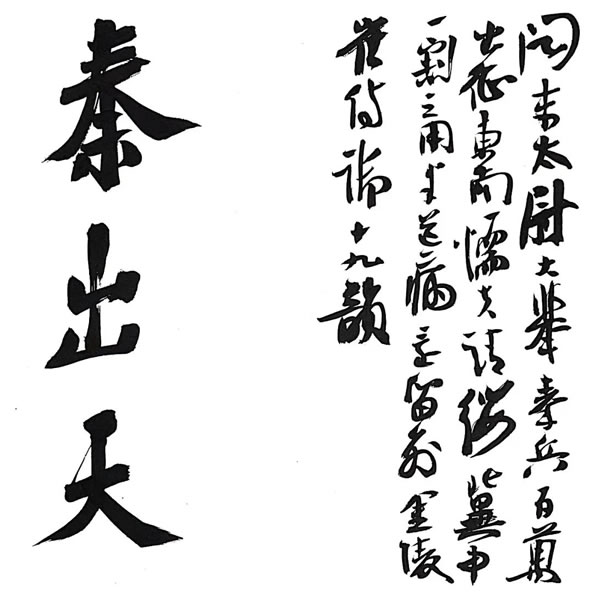 闻李太尉大舉秦兵百萬
出征東南懦夫請纓冀申
一割之用半道病還留別金陵
崔侍御十九韻
秦出天